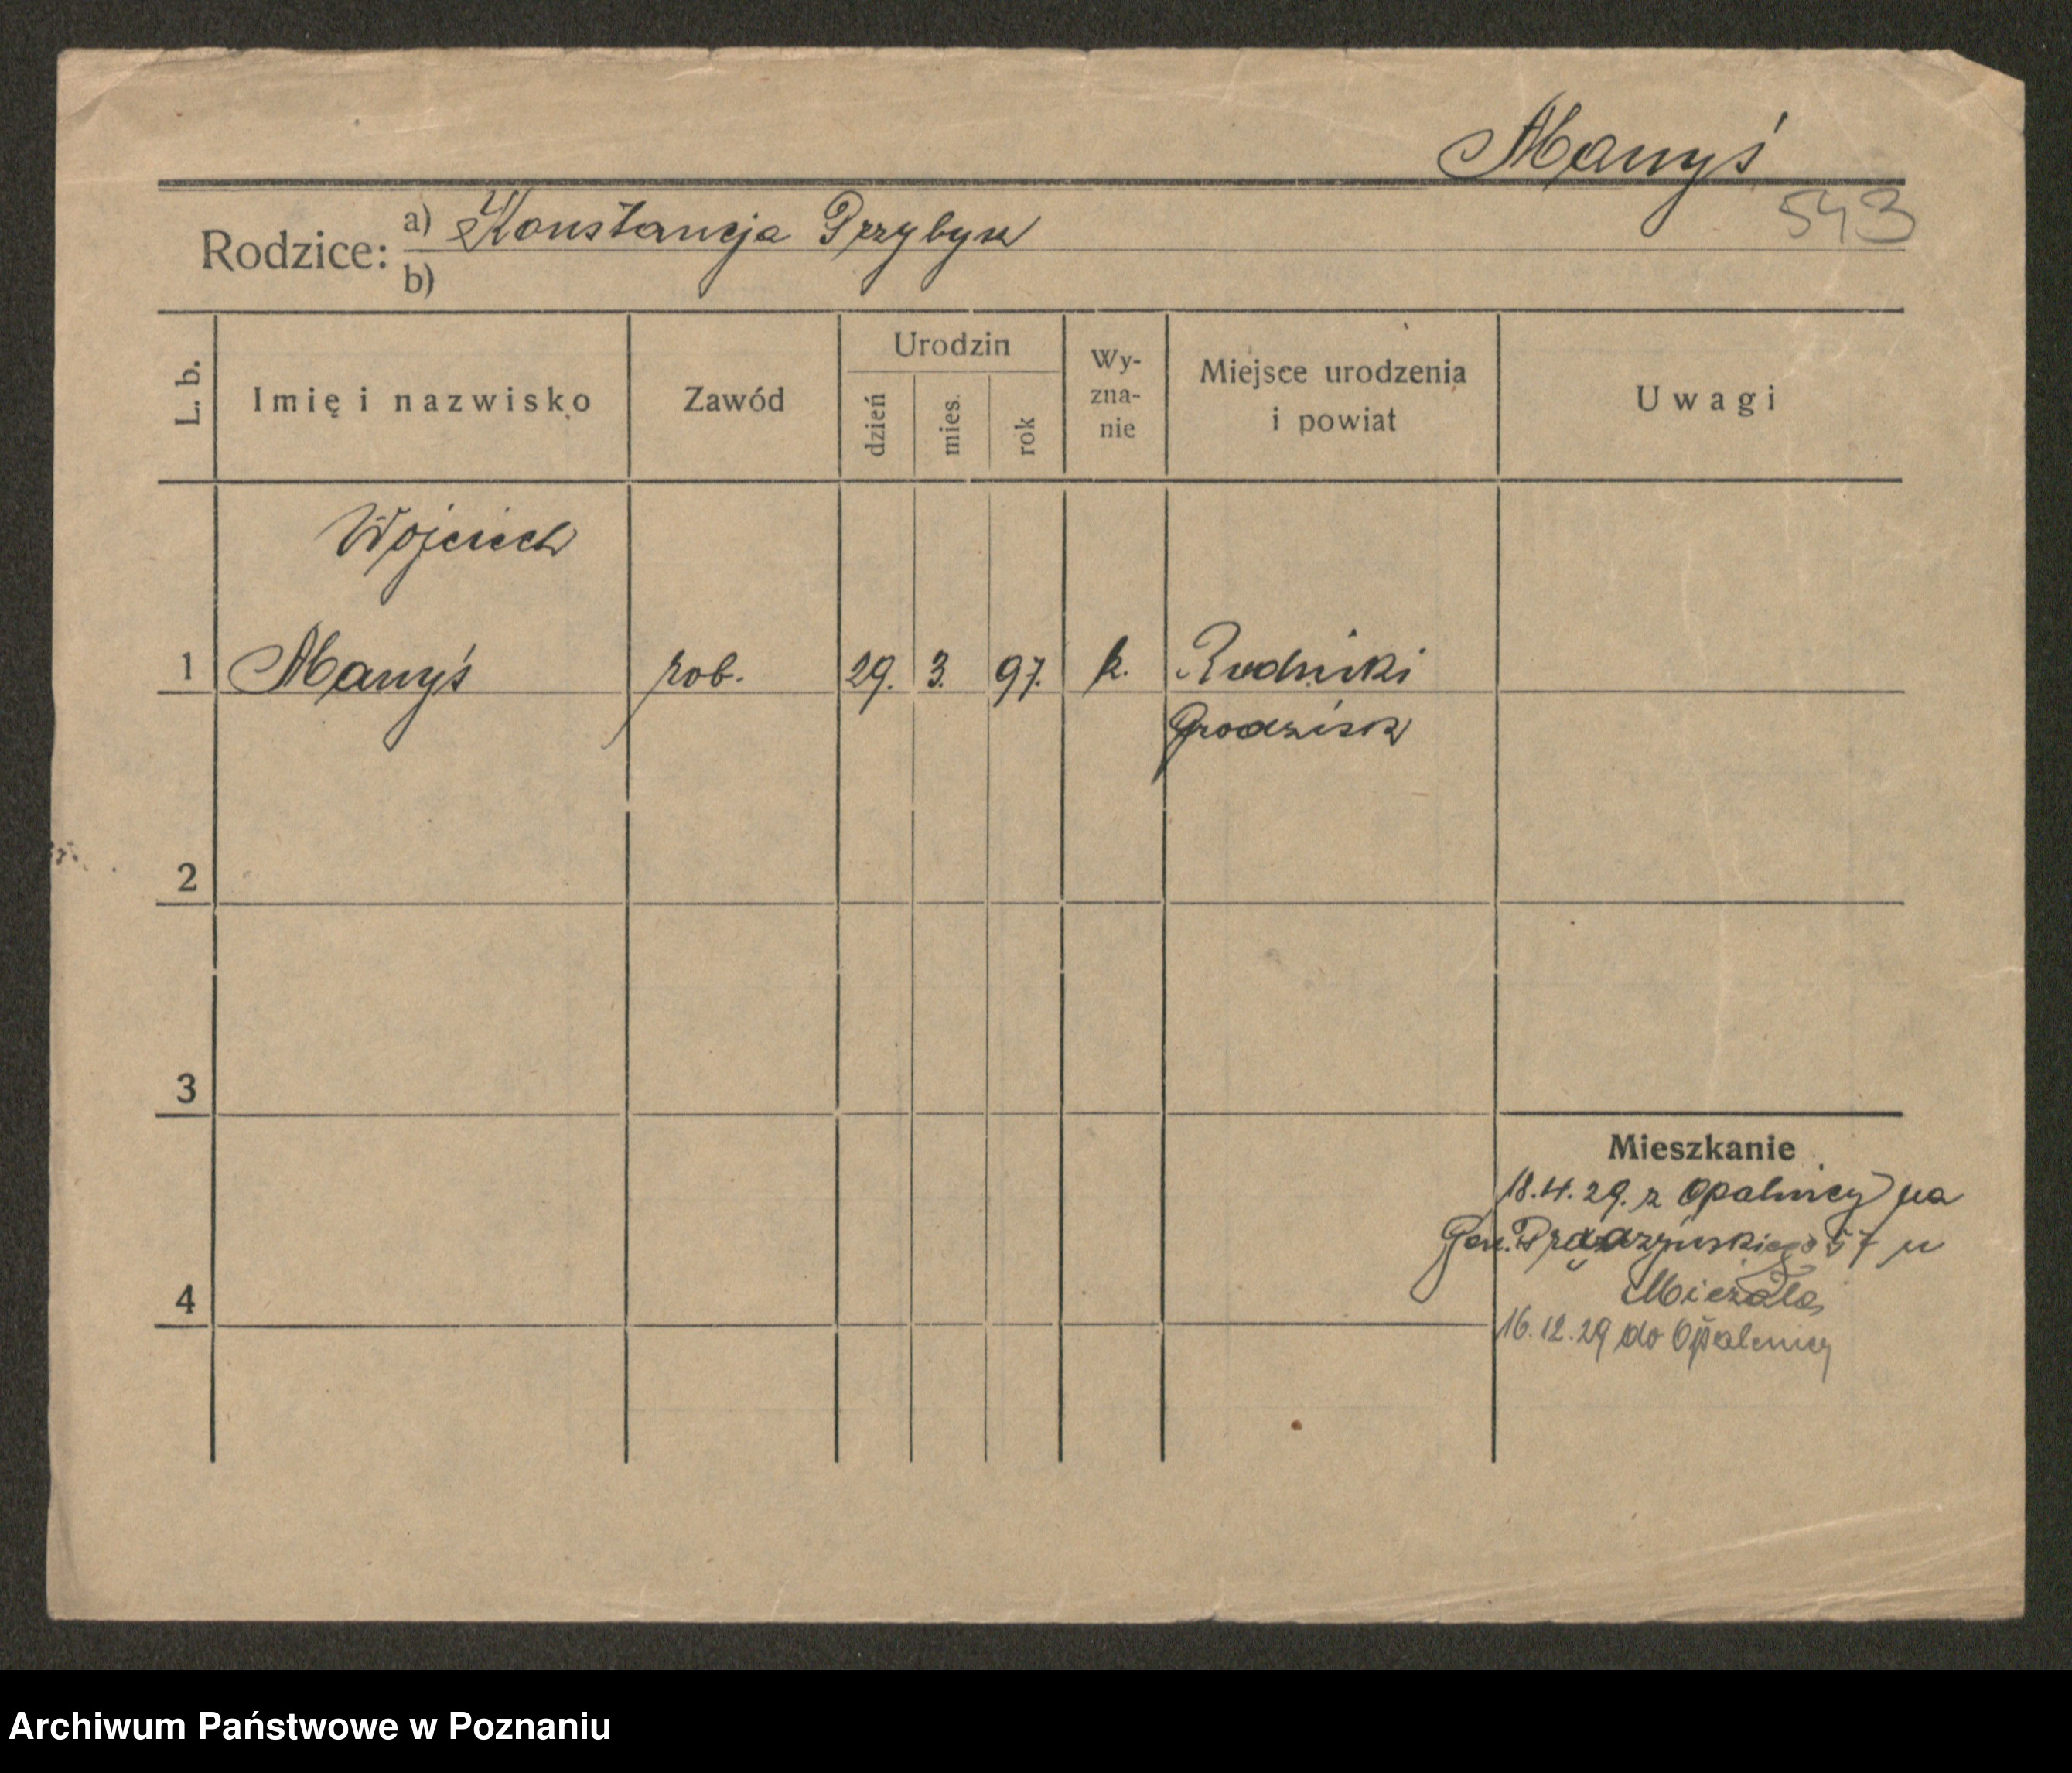 Manyś
543
Rodzice: a) Konstancja Przybysz
b)
L. b. Imię i nazwisko Zawód Urodzin dzień mies. rok Wy-zna-nie Miejsce urodzenia i powiat Uwagi
Wojciech
1 Manyś rob. 29. 3. 97. k. Rudniki
Grodzisk
2
3
Mieszkanie
18.4.29. z Opalnicy na
Gen. Prądzyńskiego 57 u
4
16.12.29 do Opalenicy
Archiwum Państwowe w Poznaniu